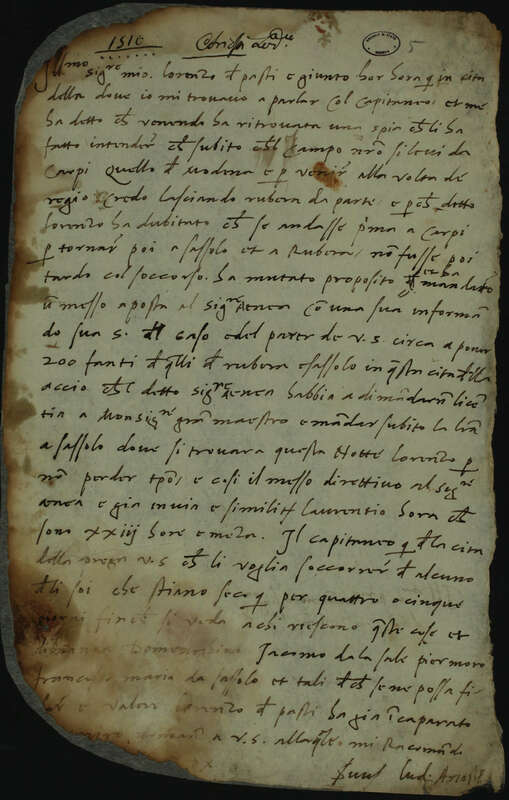 1510
5
Ill.mo Sig.re mio. lorenzo de pasti e giunto hor hora qua in cita
della dove io mi trovavo a parlar col Capitaneo: et me
ha detto che venendo ha ritrovata una spia che li ha
fatto intender che subito che'l campo nro si levi da
Carpi quello de Modena e p venir alla volta de
regio credo lasciando rubera da parte: e p che detto
lorenzo ha dubitato che se andasse p.ma a Carpi
p tornar poi a sassolo et a Rubera: no fusse poi
tardo col soccorso. ha mutato proposito et ha mandato
un messo a posta al sig.re Enea co una sua informan
do sua S. del caso e del parer de v.s. circa a poner
200 fanti de quelli de rubera e sassolo in questa citadella
accio che'l detto sig.re Enea habbia a dimandarne licen
tia a Monsig.re gran maestro e mandar subito la lra
a sassolo dove si trovara questa Notte lorenzo p
no perder tpo, e cosi il messo direttivo al sig.re
enea e gia in via e similit laurentio hora che
sono xxiij hore e meza. Il capitaneo q de la cita
della prega v.s. che li voglia soccorrer de alcuno
de li soi che stiano seco q per quattro o cinque
giorni finche si veda a chi riescono queste cose et
Domenichino Iacomo da la sale piermoro
francesco maria da sassolo et tali de che se ne possa fi
dar e valer lorenzo de pasti ha gia incaparato
a v.s. alla quale mi Racomando
Lud: Ariost.